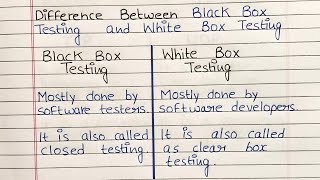 Difference Between Black Box
Testing and White Box Testing
Black Box
Testing
White Box
Testing
Mostly done by
software testers.
Mostly done by
software developers.
It is also called
closed testing.
It is also called
as clear box
testing.